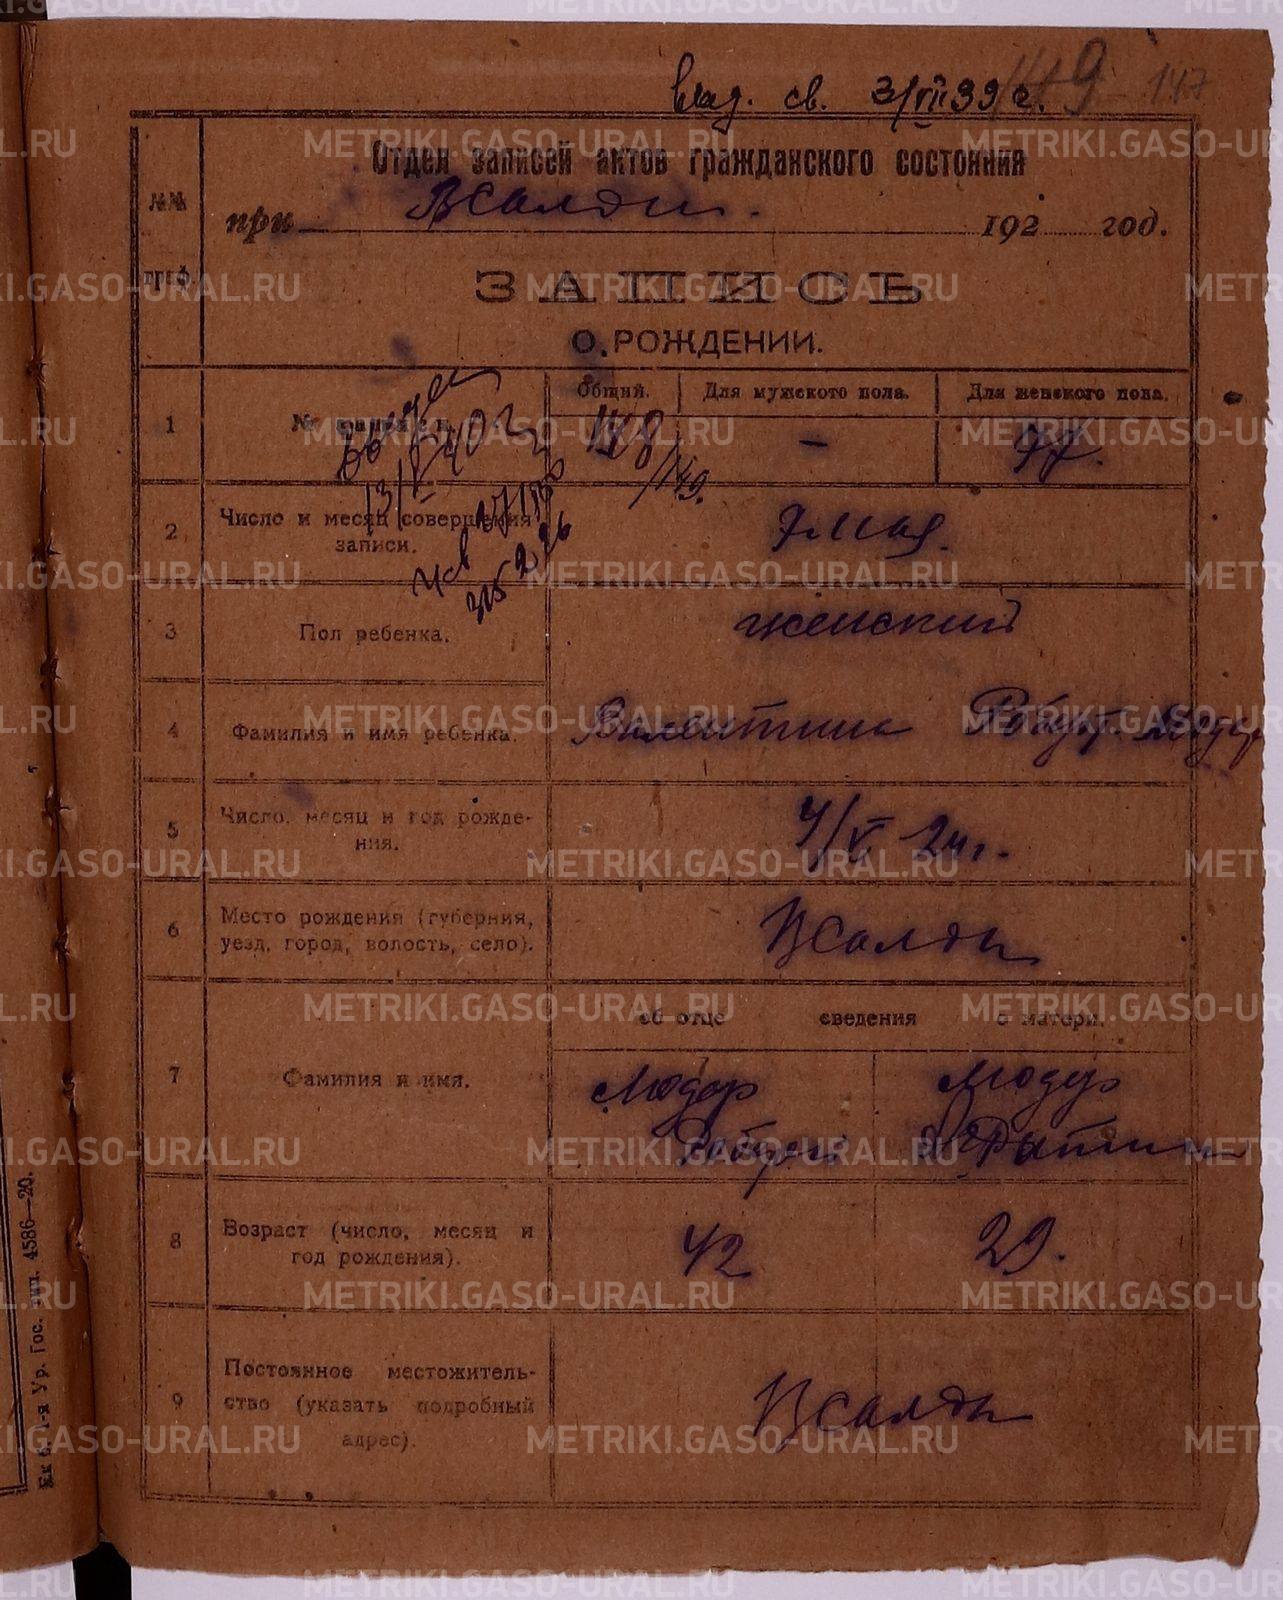 выд. св. 3/VII 39 г. 147
Отдел записей актов гражданского состояния
при ВСалды. 192 год.
№№ граф.
ЗАПИСЬ
О РОЖДЕНИИ.
1 № записи. Общий. Для мужского пола. Для женского пола.
148 /149. - 77.
13/V 40 г
2 Число и месяц совершения записи. 7 мая.
3 Пол ребенка. женский
4 Фамилия и имя ребенка. Валентина
5 Число, месяц и год рождения. 4/V 24 г.
6 Место рождения (губерния, уезд, город, волость, село). ВСалды
об отце сведения о матери.
7 Фамилия и имя. Модер Модер
8 Возраст (число, месяц и год рождения). 42 29.
9 Постоянное местожительство (указать подробный адрес). ВСалды
Ек б. 1-я Ур. Гос. тип. 4586—20.
METRIKI.GASO-URAL.RU